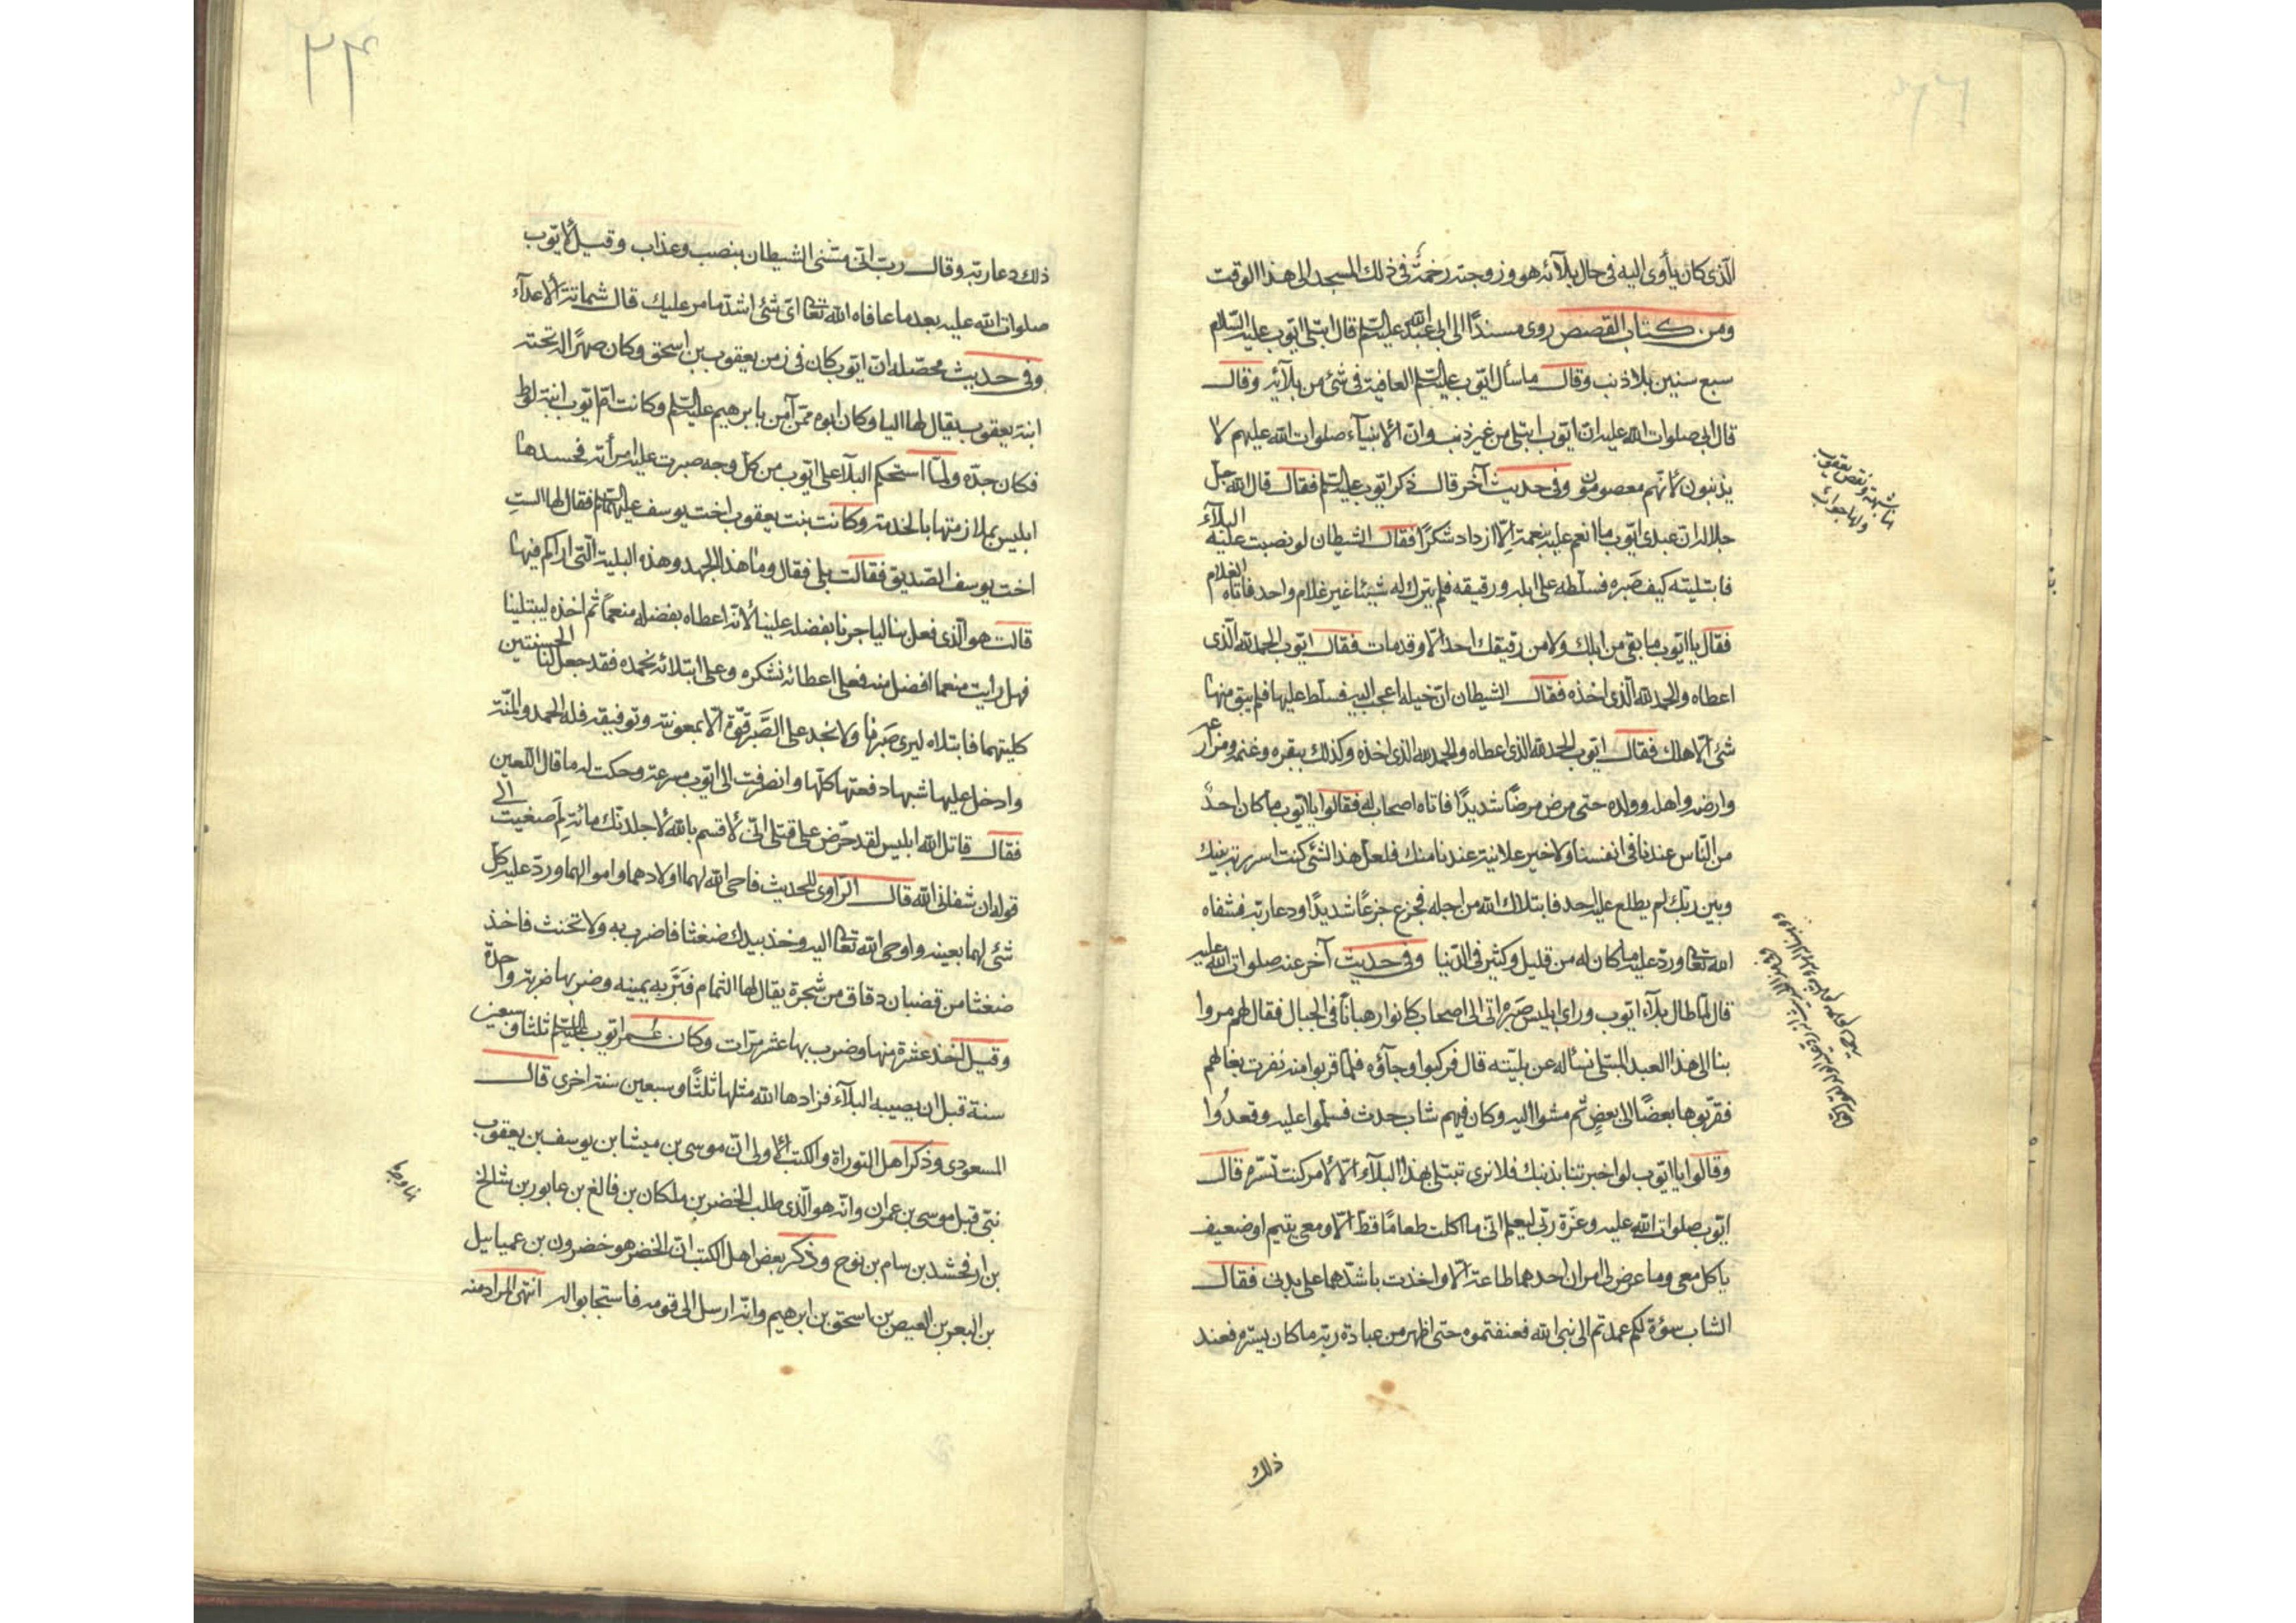 الذى كان يأوى اليه فى حال بلآئه هو وزوجته رحمة فى ذلك المسجد الى هذا الوقت
ومن كتاب القصص روى مسنداً الى ابى عبد الله عليه السلم قال ابتلى ايّوب عليه السّلام
سبع سنين بلا ذنب وقال ما سأل ايّوب عليه السلم العافية فى شئ من بلآئه وقال
قال ابى صلوات الله عليه انّ ايّوب ابتلى من غير ذنب وانّ الانبيآء صلوات الله عليهم لا
يذنبون لانّهم معصومون وفى حديث آخر قال ذكر ايّوب عليه السلم فقال قال الله جلّ
جلاله انّ عبدى ايّوب ما انعم عليه بنعمة الّا ازداد شكرًا فقال الشيطان لو نصبت عليه البلآء
فابتليته كيف صَبره فسلّطه على ابله ورقيقه فلم يترك له شيئا غير غلام واحد فاتاه الغلام
فقال يا ايّوب ما بقى من ابلك ولا من رقيقك احد الّا وقد مات فقال ايّوب الحمد لله الّذى
اعطاه والحمد لله الّذى اخذه فقال الشيطان انّ خيله اعجب اليه فسلّط عليها فلم يبق منها
شئ الّا هلك فقال ايّوب الحمد لله الذى اعطاه والحمد لله الذى اخذه وكذلك ببقره وغنمه ومزارعه
وارضه واهله وولده حتى مرض مرضًا شديدًا فاتاه اصحاب له فقالوا يا ايّوب ما كان احدٌ
من النّاس عندنا فى انفسنا ولا خير علانية عندنا منك فلعلّ هذا الشئ كنت اسررته بينك
وبين ربّك لم يطلع عليه احد فابتلاك الله من اجله فجزع جزعًا شديدًا ودعا ربّه فشفاه
الله تعالى وردّ عليه ما كان له من قليل وكثير فى الدّنيا وفى حديث آخر عنه صلوات الله عليه
قال لمّا طال بلآء ايّوب وراى ابليس صَبره اتى الى اصحاب كانوا رهبانًا فى الجبال فقال لهم مروا
بنا الى هذا العبد المبتلى نسأله عن بليّته قال فركبوا وجآؤه فلمّا قربوا منه نفرت بغالهم
فقرّبوها بعضًا الى بعضٍ ثم مشوا اليه وكان فيهم شاب حدث فسلّموا عليه وقعدُوا
وقالوا يا ايّوب لو اخبرتنا بذنبك فلا نرى تبتلى بهذا البلآء الّا لامر كنت تسّره قال
ايّوب صلوات الله عليه وعزّة ربّى ليعلم انّى ما اكلت طعامًا قطّ الّا ومعى يتيم او ضعيف
ياكل معى وما عرض لى امران احدهما طاعة الّا واخذت باشدّهما على بدنى فقال
الشاب سؤة لكم عمدتم الى نبى الله فعنفتموه حتى اظهر من عبادة ربّه ما كان يستره فعند
ذلك
ذلك دعا ربّه وقال ربّ انّى مسّنى الشيطان بنصب وعذاب وقيل لأيّوب
صلوات الله عليه بعد ما عافاه الله تعالى اىّ شئ اشدّ ما مر عليك قال شماتة الأعدآء
وفى حديث محصّله انّ ايّوب كان فى زمن يعقوب بن اسحق وكان صهرًا له تحته
ابنة يعقوب يقال لها اليا وكان ابوه ممّن آمن بابرهيم عليه السلم وكانت امّ ايّوب ابنة لوط
فكان جدّه ولمّا استحكم البلآء على ايّوب من كلّ وجه صبرت عليه امرأته فحسدها
ابليس بملازمتها بالخدمة وكانت بنت يعقوب اخت يوسف عليهم السلام فقال لها الستِ
اخت يوسف الصّديق فقالت بلى فقال وما هذا الجهد وهذه البلية الّتى اراكم فيها
قالت هو الّذى فعل بنا لياجرنا بفضله علينا لأنّه اعطاه بفضله منعمًا ثم اخذه ليبتلينا
فهل رايت منعما افضل منه فعلى اعطائه نشكره وعلى ابتلائه نحمده فقد جعل لنا الحسنتين
كليتهما فابتلاه ليرى صَبرنا ولا نجد على الصَّبر قوّة الّا بمعونته وتوفيقه فله الحمد والمنّة
وادخل عليها شبها دفعتها كلّها وانصرفت الى ايّوب مسرعة وحكت له ما قال اللّعين
فقال قاتل الله ابليس لقد حرّض على قتلى انّى لأقسم بالله لأجلدنّك مائة لِمَ صَغيت الى
قوله ان شفانى الله قال الرّاوى للحديث فاحى الله لهما اولادهما واموالهما وردّ عليه كلّ
شئ لهما بعينه واوحى الله تعالى اليه وخذ بيدك ضغثا فاضرب به ولا تحنث فاخذ
ضغثا من قضبان دقاق من شجرة يقال لها الثمام فبرّ به يمينه وضربها ضربة واحدة
وقيل اخذ عشرة منها وضرب بها عشر مرّات وكان عُمر ايّوب عليه السلم ثلثا وسبعين
سنة قبل ان يصيبه البلآء فزادها الله مثلها ثلثًا وسبعين سنة اخرى قال
المسعودى وذكر اهل التوراة والكتب الأولى انّ موسى بن ميشا بن يوسف بن يعقوب
نبّى قبل موسى بن عمران وانّه هو الّذى طلب الخضر بن ملكان بن فالغ بن عابور بن شالخ
بن ارفخشد بن سام بن نوح وذكر بعض اهل الكتب انّ الخضر هو خضرون بن عميائيل
بن اليعر بن العيص بن اسحق بن ابرهيم وانّه ارسل الى قومه فاستجابوا له انتهى المراد منه